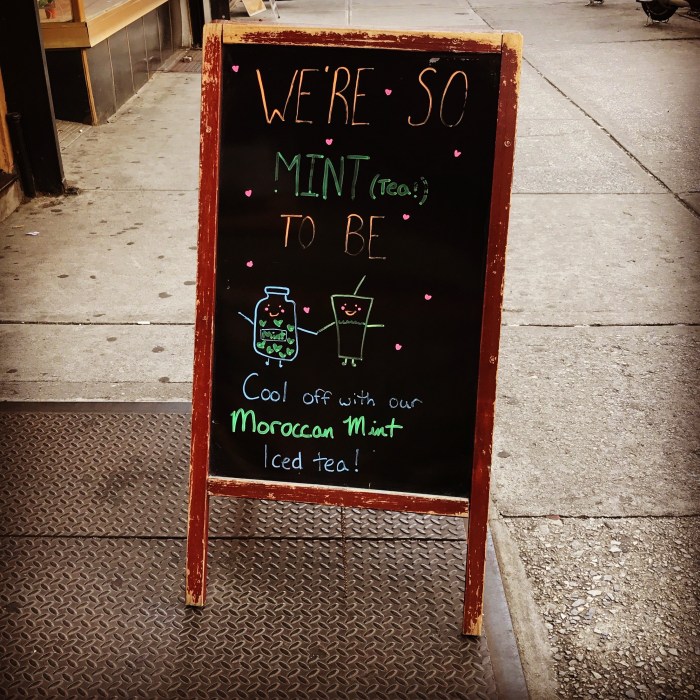 WE'RE SO
MINT (Tea!)
TO BE
Mint
Cool off with our
Moroccan Mint
Iced tea!